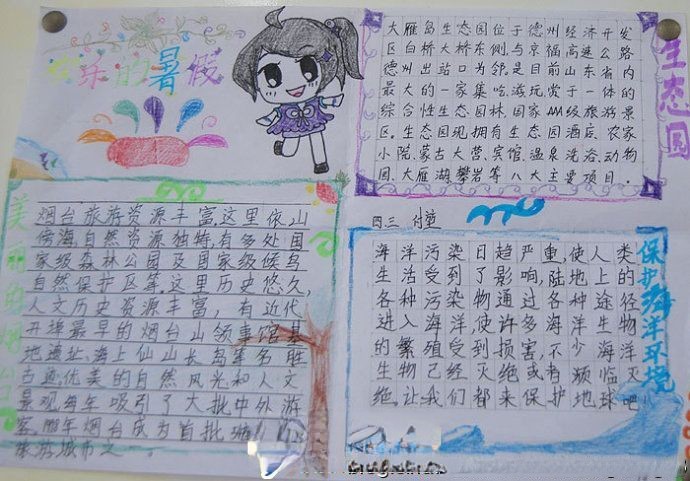 欢乐的暑假
大雁岛生态园位于德州经济开发
区白桥大桥东侧,与京福高速公路
德州出站口为邻,是目前山东省内
最大的一家集吃、游、玩、赏于一体的
综合性生态园林,国家AAA级旅游景
区。生态园现拥有生态园酒店、农家
小院、蒙古大营、宾馆、温泉洗浴、动物
园、大雁湖、攀岩等八大主要项目.
生态园
四三
美丽的烟台
烟台旅游资源丰富,这里依山
傍海,自然资源独特,有多处国
家级森林公园及国家级候鸟
自然保护区等.这里历史悠久,
人文历史资源丰富,有近代
开埠最早的烟台山领事馆基
地遗址、海上仙山长岛等名胜
古迹.优美的自然风光和人文
景观,每年吸引了大批中外游
客.
烟台成为首批
旅游城市之一。
海洋污染日趋严重,使人类
生活受到了影响,陆地上的
各种污染物通过各种途径
进入海洋,使许多海洋生物
的繁殖受到损害,不少海洋
生物已经灭绝或者濒临灭
绝.让我们都来保护地球吧!
保护海洋环境